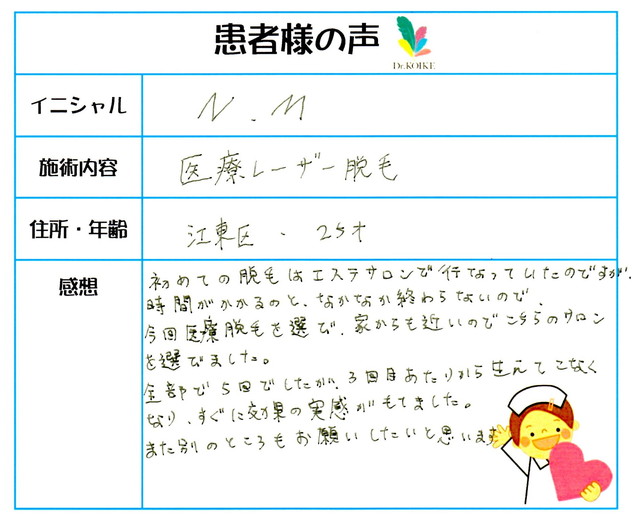 患者様の声
Dr.KOIKE
イニシャル
N.M
施術内容
医療レーザー脱毛
住所・年齢
江東区・25才
感想
初めての脱毛はエステサロンで行なっていたのですが、
時間がかかるのと、なかなか終わらないので、
今回医療脱毛を選び、家からも近いのでこちらのサロン
を選びました。
全部で5回でしたが、3回目あたりから生えてこなく
なり、すぐに効果の実感がもてました。
また別のところもお願いしたいと思います